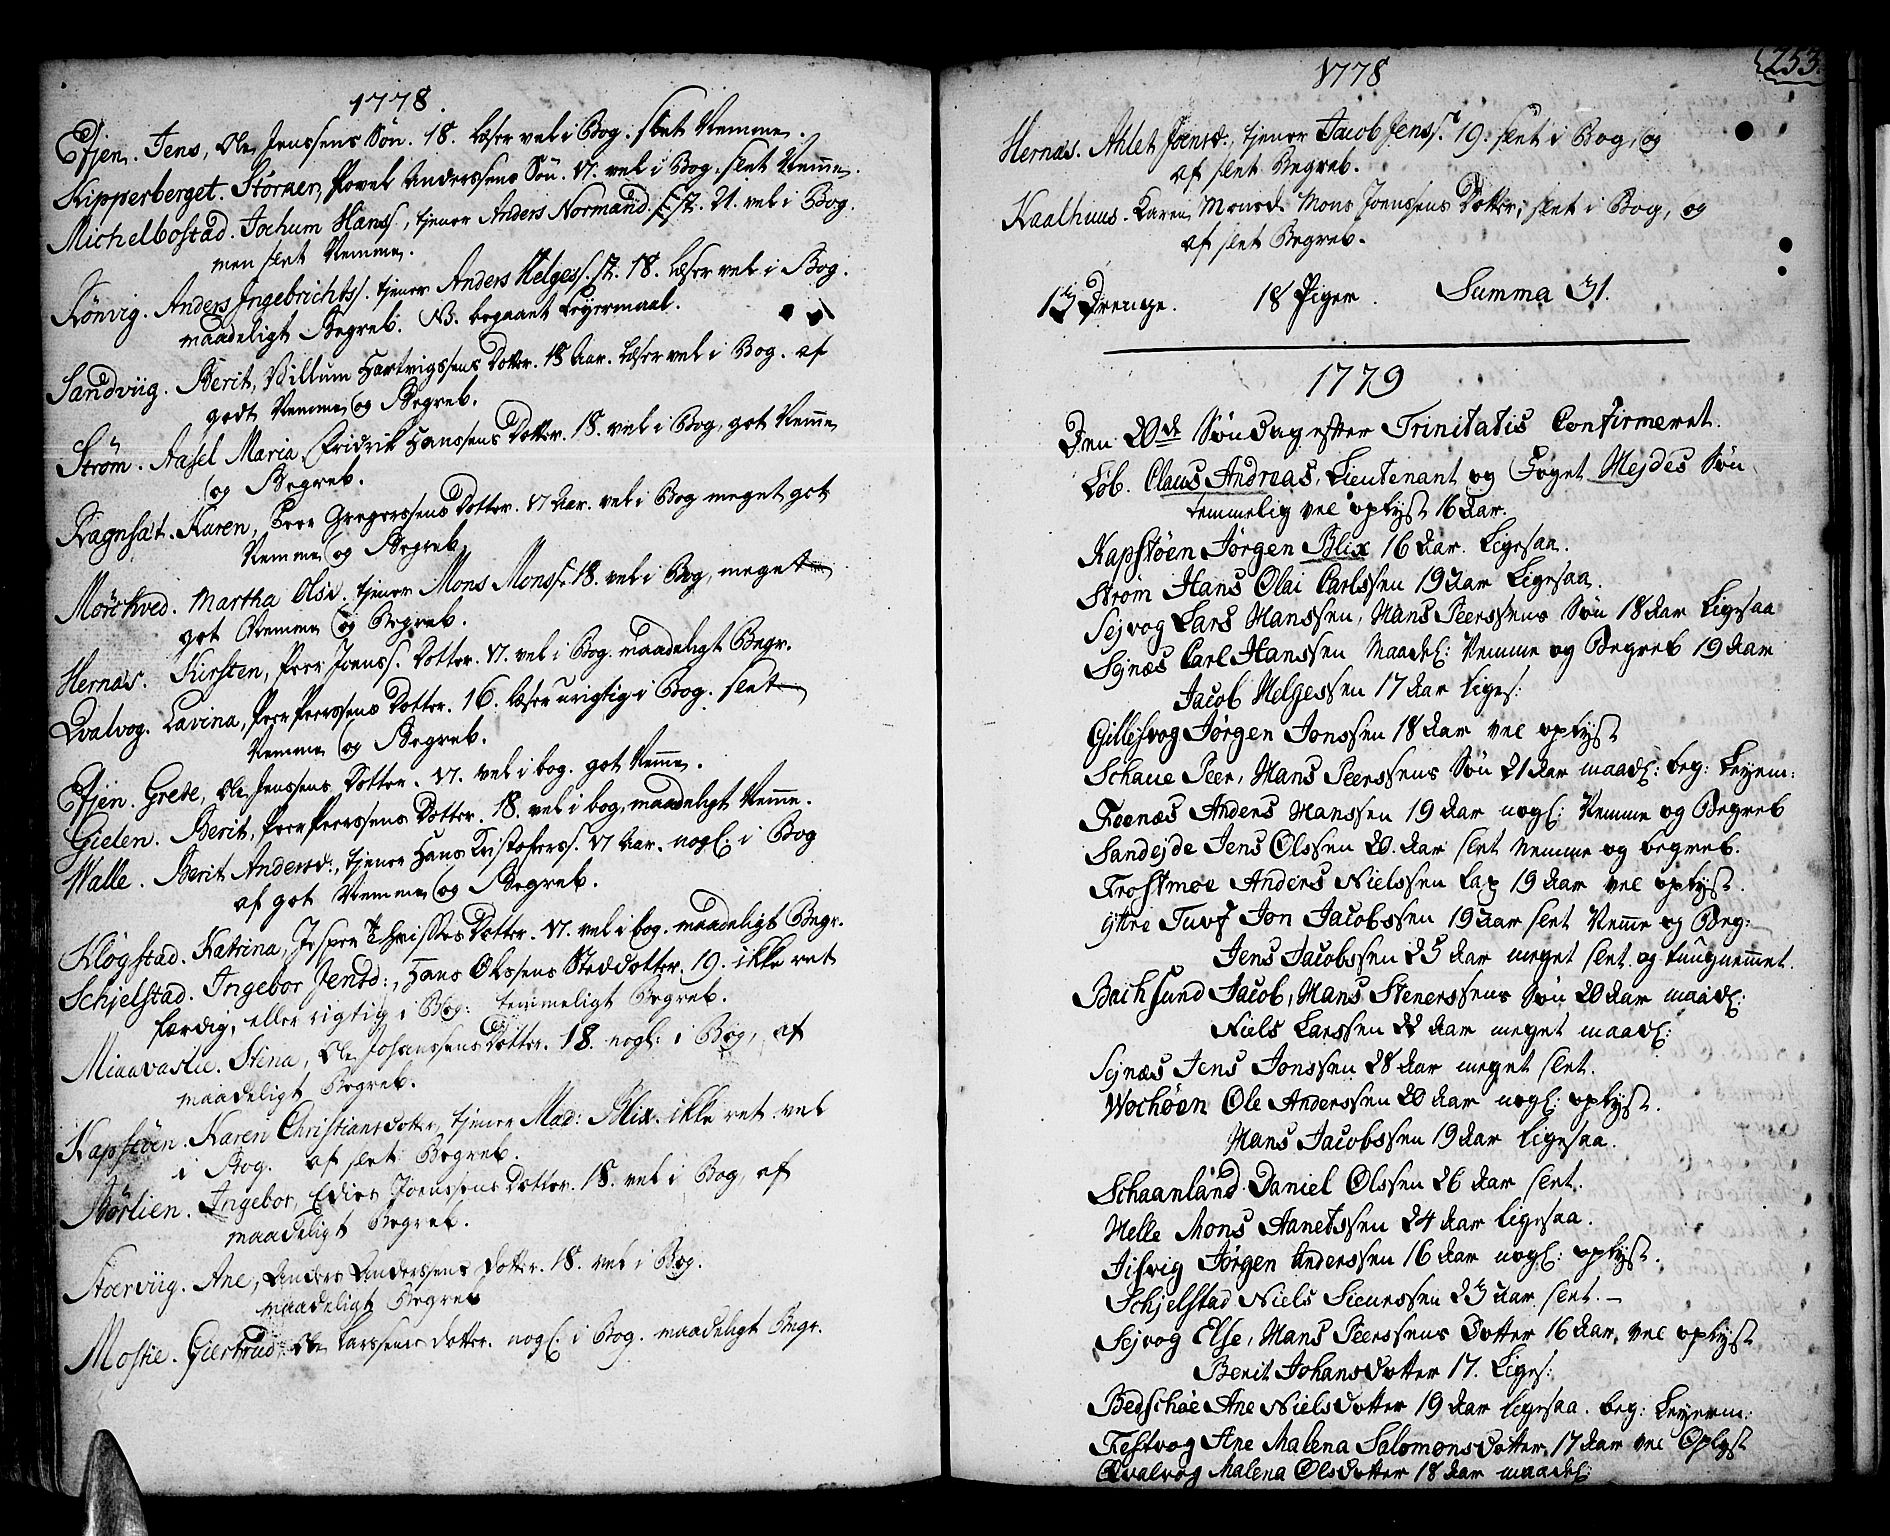 1778.
Efjen. Jens, Ole Jenssens Søn. 18. læser vel i Bog. slet Nemme.
Kipperberget. Störner, Povel Anderssens Søn. 17. vel i Bog. slet Nemme.
Michelbostad. Jochum Hanss., tjener Anders Normand 21. vel i Bog.
men slet Nemme.
Rönvig. Anders Ingebrichtss. tjener Anders Helgess. 18. læser vel i Bog.
maadeligt Begreb. NB. begaaet Leyermaal.
Sandviig. Berit, Villum Hartvigssens Dotter. 18 Aar. læser vel i Bog. af
godt Nemme og Begreb.
Strøm. Aasel Maria, Fridrik Hanssens Dotter. 18. vel i Bog, got Nemme
og Begreb.
Ragnsat. Karen, Peer Gregerssens Dotter. 17 Aar. vel i Bog meget got
Nemme og Begreb.
Mörchved. Martha Olsd. tjener Mons Monss. 18. vel i Bog, meget
got Nemme og Begreb.
Hernæs. Kirsten, Peer Joenss. Dotter. 17. vel i Bog. maadeligt Begr.
Qvalvog. Lavina, Peer Peerssens Dotter. 16. læser urigtig i Bog. slet
Nemme og Begreb.
Efjen. Grete, Ole Jenssens Dotter. 17. vel i bog. got Nemme.
Gielen. Berit, Peer Peerssens Dotter. 18. vel i bog, maadeligt Nemme.
Walle. Berit Andersd:, tjener Hans Kristoferss. 17 Aar. nogl: i Bog
af got Nemme og Begreb.
Kløgstad. Katrina, Jesper Dotter. 17. vel i bog. maadeligt Begr.
Schjelstad. Ingebor Jensd:, Hans Olssens Stevdotter. 19. ikke ret
færdig, eller rigtig i Bog: temmeligt Begreb.
Miaavaslie. Stina, Ole Johanssens Dotter. 18. nogl: i Bog, af
maadeligt Begreb.
Kapstöen. Karen Christiansdotter, tjener Mad: Blix. ikke ret vel
i Bog. af slet Begreb.
Börlien. Ingebor, Edies Joenssens Dotter. 18. vel i Bog, af
maadeligt Begreb.
Storviig. Ane, Anders Anderssens Dotter. 18. vel i Bog.
maadeligt Begreb
Moslie. Giertrud, Ole Larssens dotter. nogl: i Bog. maadeligt Begr.
253.
1778
Hernæs. Ahlet Joensd:, tjener Jacob Jenss. 19. slet i Bog, og
af slet Begreb.
Kaalhuus. Karen Monsd. Mons Joenssens Dotter; slet i Bog, og
af slet Begreb.
13 Drenge. 18 Piger. Summa 31.
1779
Den 20de Søndag efter Trinitatis Confirmeret.
Løb. Claus Andreas, Lieutenant og Foget Mejdes Søn
temmelig vel oplyst 16 Aar.
Kapstöen Jørgen Blix 16 Aar. Ligesaa.
Strøm Hans Olai Carlssen 19 Aar Ligesaa.
Sejvog Lars Hanssen, Hans Peerssens Søn 18 Aar Ligesaa
Sejnæs Carl Hanssen Maadel: Nemme og Begreb 19 Aar
Jacob Helgessen 17 Aar Liges:
Gillesvog Jørgen Jonssen 18 Aar vel oplyst
Schaue Peer, Hans Peerssens Søn 21 Aar maadl: beg: Leyerm:
Fornæs Anders Hanssen 19 Aar nogl: Nemme og Begreb
Sandejde Jens Olssen 20. Aar slet Nemme og begreb.
Frostmoe Anders Nielssen Lap 19 Aar vel oplyst.
Yttre Tuvf Jon Jacobssen 19 Aar slet Nemme og Beg:
Jens Jacobssen 25 Aar meget slet og tungnemmet.
Bachsund Jacob, Hans Stenerssens Søn 20 Aar maadl:
Niels Larssen 22 Aar meget maadl:
Sejnæs Jens Jonssen 28 Aar meget slet.
Wochöen Ole Anderssen 20 Aar nogl: oplyst.
Hans Jacobssen 19 Aar Ligesaa.
Schaanland Daniel Olssen 26 Aar slet.
Helle Mons Aanetssen 24 Aar Ligesaa.
Jisvig Jørgen Anderssen 16 Aar nogl: oplyst.
Schjelstad Niels Siverssen 23 Aar slet.
Sejvog Else, Hans Peerssens Dotter 16 Aar, vel oplyst
Berit Johansdotter 17. Liges:
Bedschöe Ane Nielsdotter 19 Aar Ligesaa. beg: Leyerm:
Festvog Ane Malena Salomonsdotter, 17 Aar vel Oplyst
Qvalvog Malena Olsdotter 18 Aar maadel: